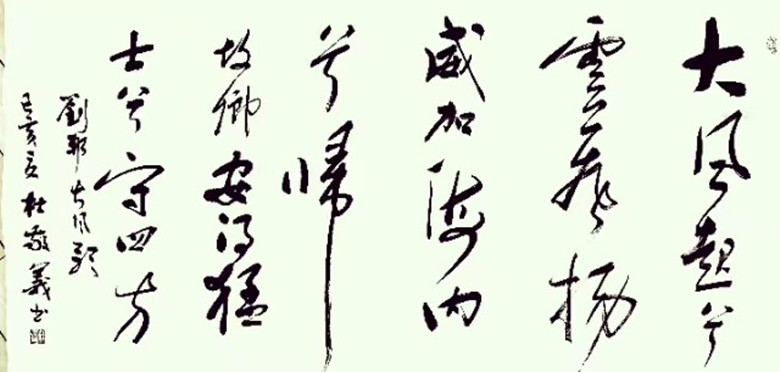 大风起兮
雲飛揚
威加海内
兮歸
故鄉安得猛
士兮守四方
劉邦大风歌
亥夏杜敬義书